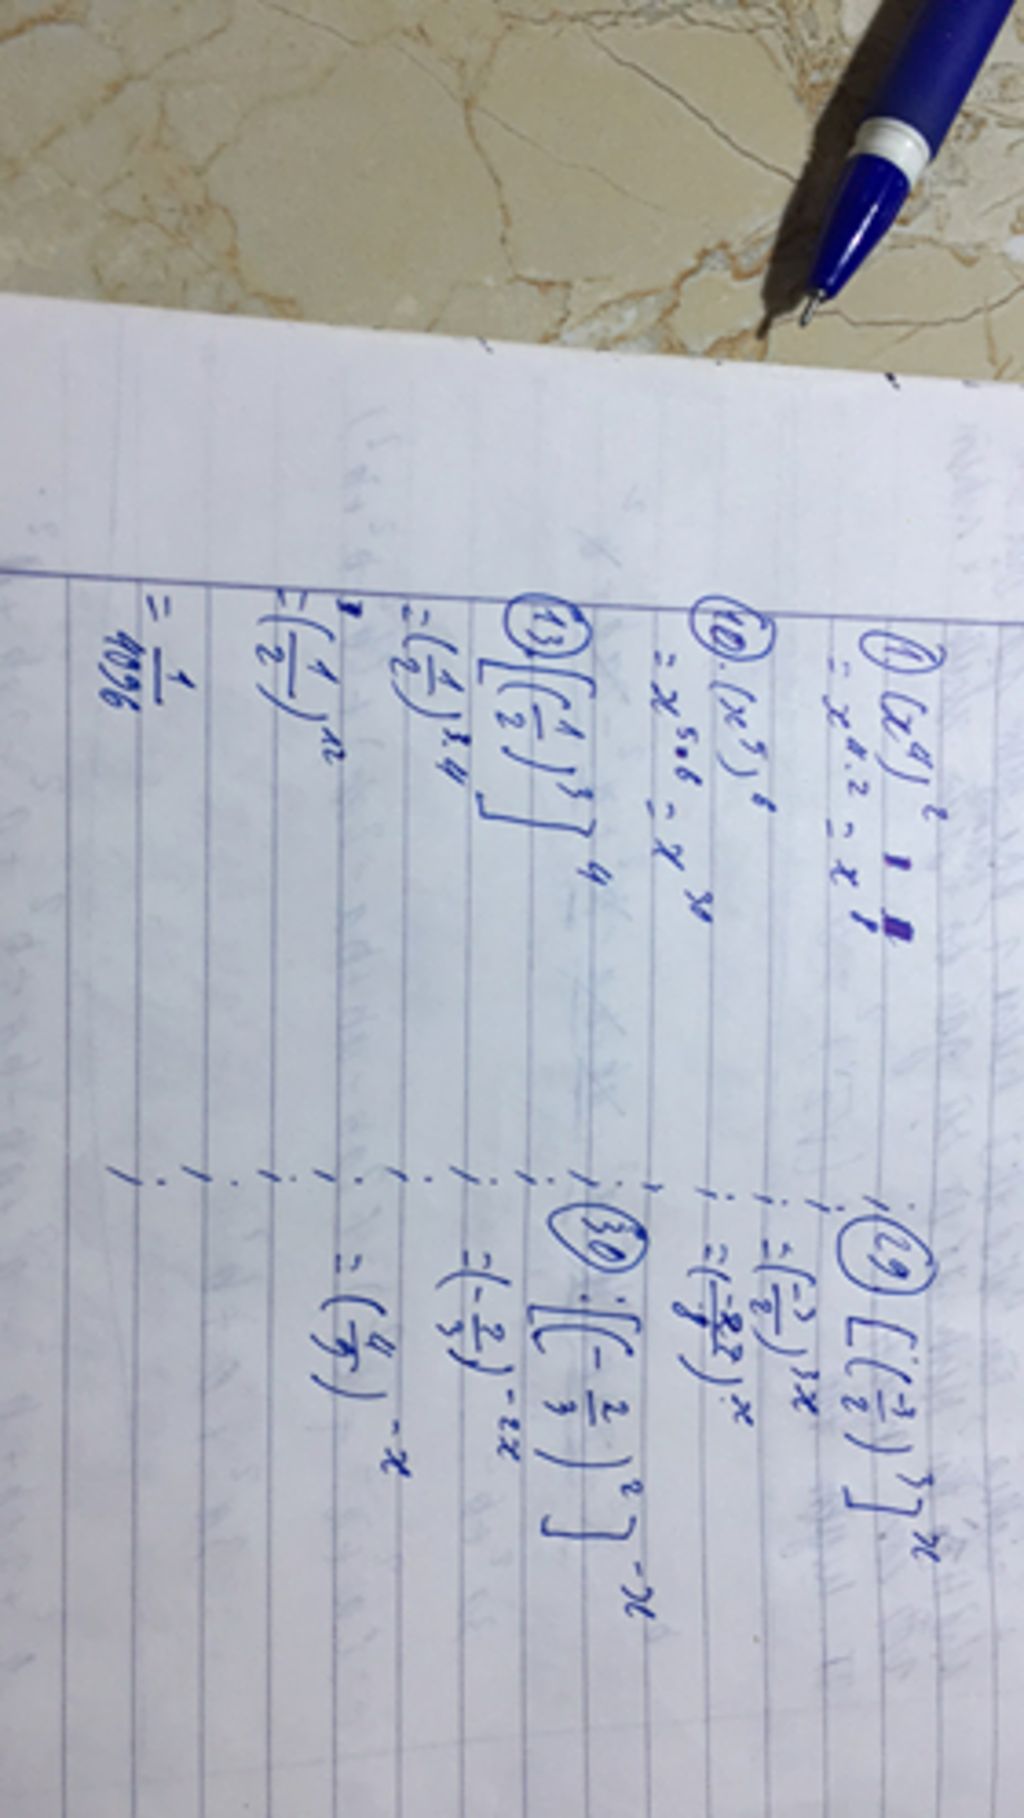 1) (x⁴)²
= x⁴·² = x⁸
10. (x⁵)⁶
= x⁵·⁶ = x³⁰
13) [(1/2)³]⁴
= (1/2)³·⁴
= (1/2)¹²
= 1/4096
29) [(-3/2)³]ˣ
= (-3/2)³ˣ
= (-27/8)ˣ
30. [(-2/3)²]⁻ˣ
= (-2/3)⁻²ˣ
= (4/9)⁻ˣ